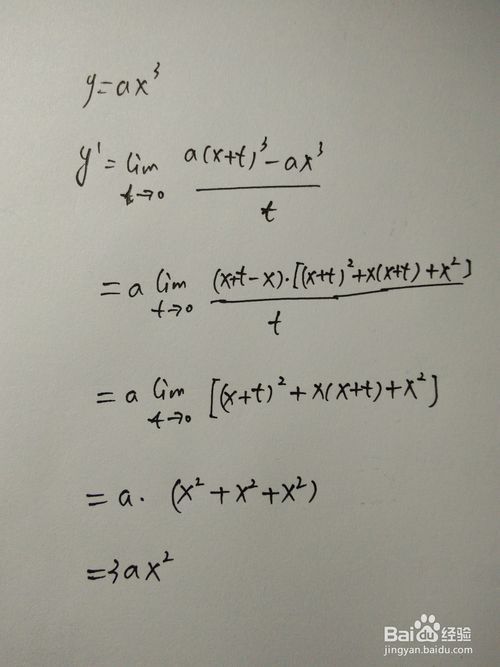 y=ax³
y'=lim t→0 (a(x+t)³-ax³)/t
=a lim t→0 ((x+t-x)·[(x+t)²+x(x+t)+x²])/t
=a lim t→0 [(x+t)²+x(x+t)+x²]
=a·(x²+x²+x²)
=3ax²
Baidu经验
jingyan.baidu.com